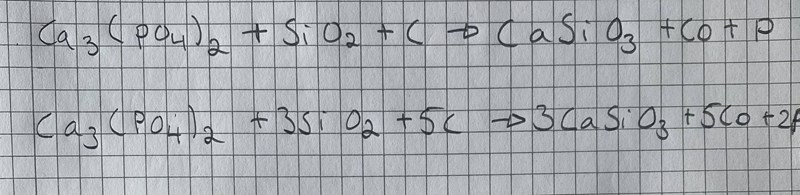 Ca₃(PO₄)₂ + SiO₂ + C → CaSiO₃ + CO + P
Ca₃(PO₄)₂ + 3SiO₂ + 5C → 3CaSiO₃ + 5CO + 2P